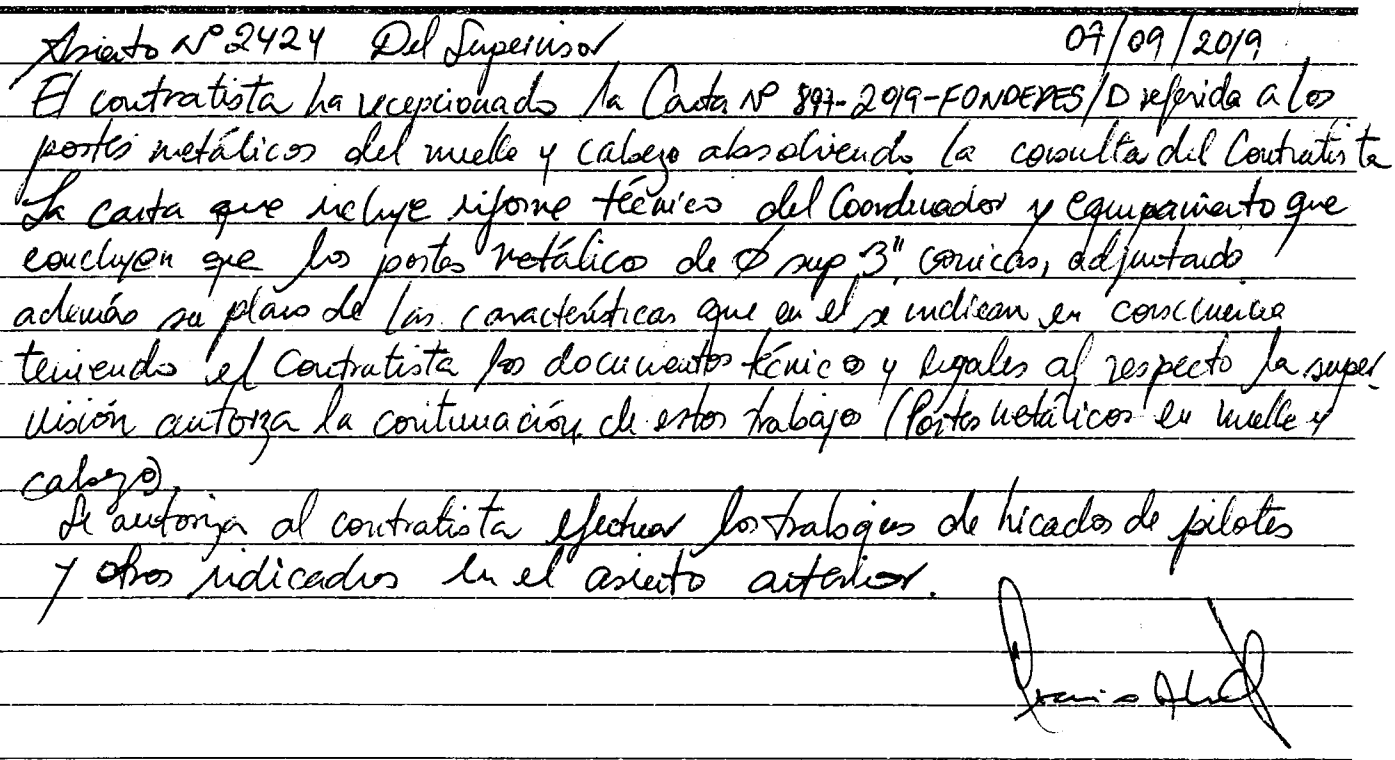 Asiento Nº 2424 Del Supervisor 07/09/2019
El contratista ha recepcionado la Carta Nº 897-2019-FONDEPES/D referida a los
postes metálicos del muelle y cabezo absolviendo la consulta del Contratista
La carta que incluye informe técnico del Coordinador y equipamiento que
concluyen que los postes metálicos de Ø sup 3" conicas, adjuntando
además su plano de las características que en el se indican en consecuencia
teniendo el Contratista los documentos técnico y legales al respecto la super-
visión autoriza la continuación de estos trabajo (Postes metálicos en muelle y
cabezo).
Se autoriza al contratista efectuar los trabajos de hicados de pilotes
y otros indicados en el asiento anterior.